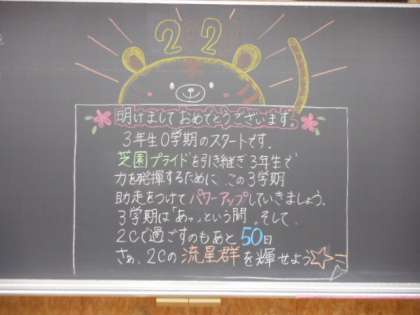 2022
明けましておめでとうございます。
3年生0学期のスタートです。
芝園プライドを引き継ぎ3年生で
力を発揮するために、この3学期
助走をつけてパワーアップしていきましょう。
3学期は「あっ」という間。そして、
2Cで過ごすのもあと50日
さぁ、2Cの流星群を輝かせよう